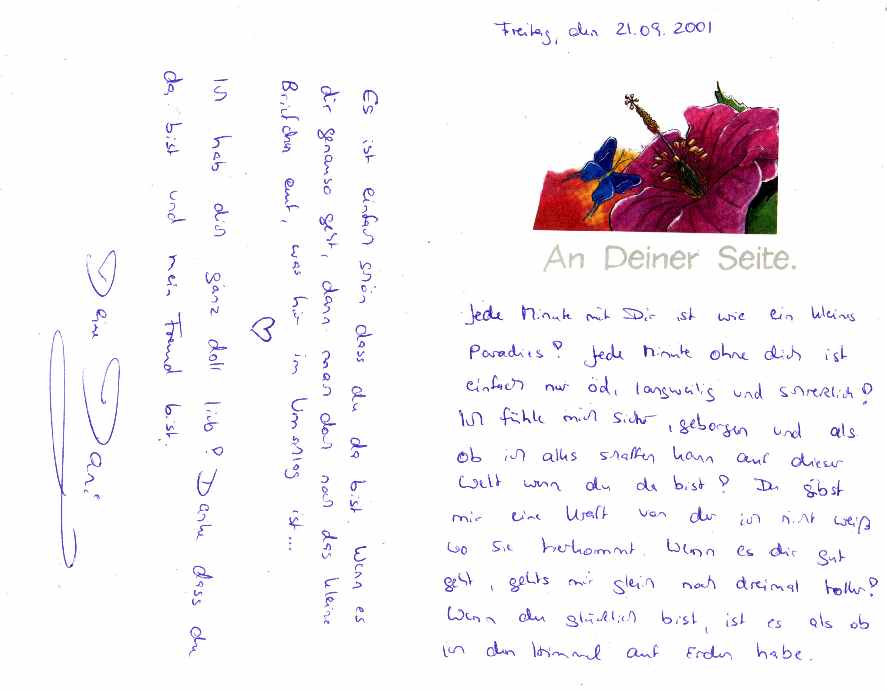 Freitag, den 21.09.2001
An Deiner Seite.
Jede Minute mit Dir ist wie ein kleines
Paradies! Jede Minute ohne dich ist
einfach nur öd, langweilig und schrecklich!
Ich fühle mich sicher, geborgen und als
ob ich alles schaffen kann auf dieser
Welt wenn du da bist! Du gibst
mir eine Kraft von der ich nicht weiß
wo sie herkommt. Wenn es dir gut
geht, gehts mir gleich noch dreimal toller!
Wenn du glücklich bist, ist es als ob
ich den Himmel auf Erden habe.
Es ist einfach schön dass du da bist. Wenn es
dir genauso geht, dann mach doch noch das kleine
Briefchen auf, was hier im Umschlag ist...
Ich hab dich ganz doll lieb! Danke dass du
da bist und mein Freund bist.
Deine Dani